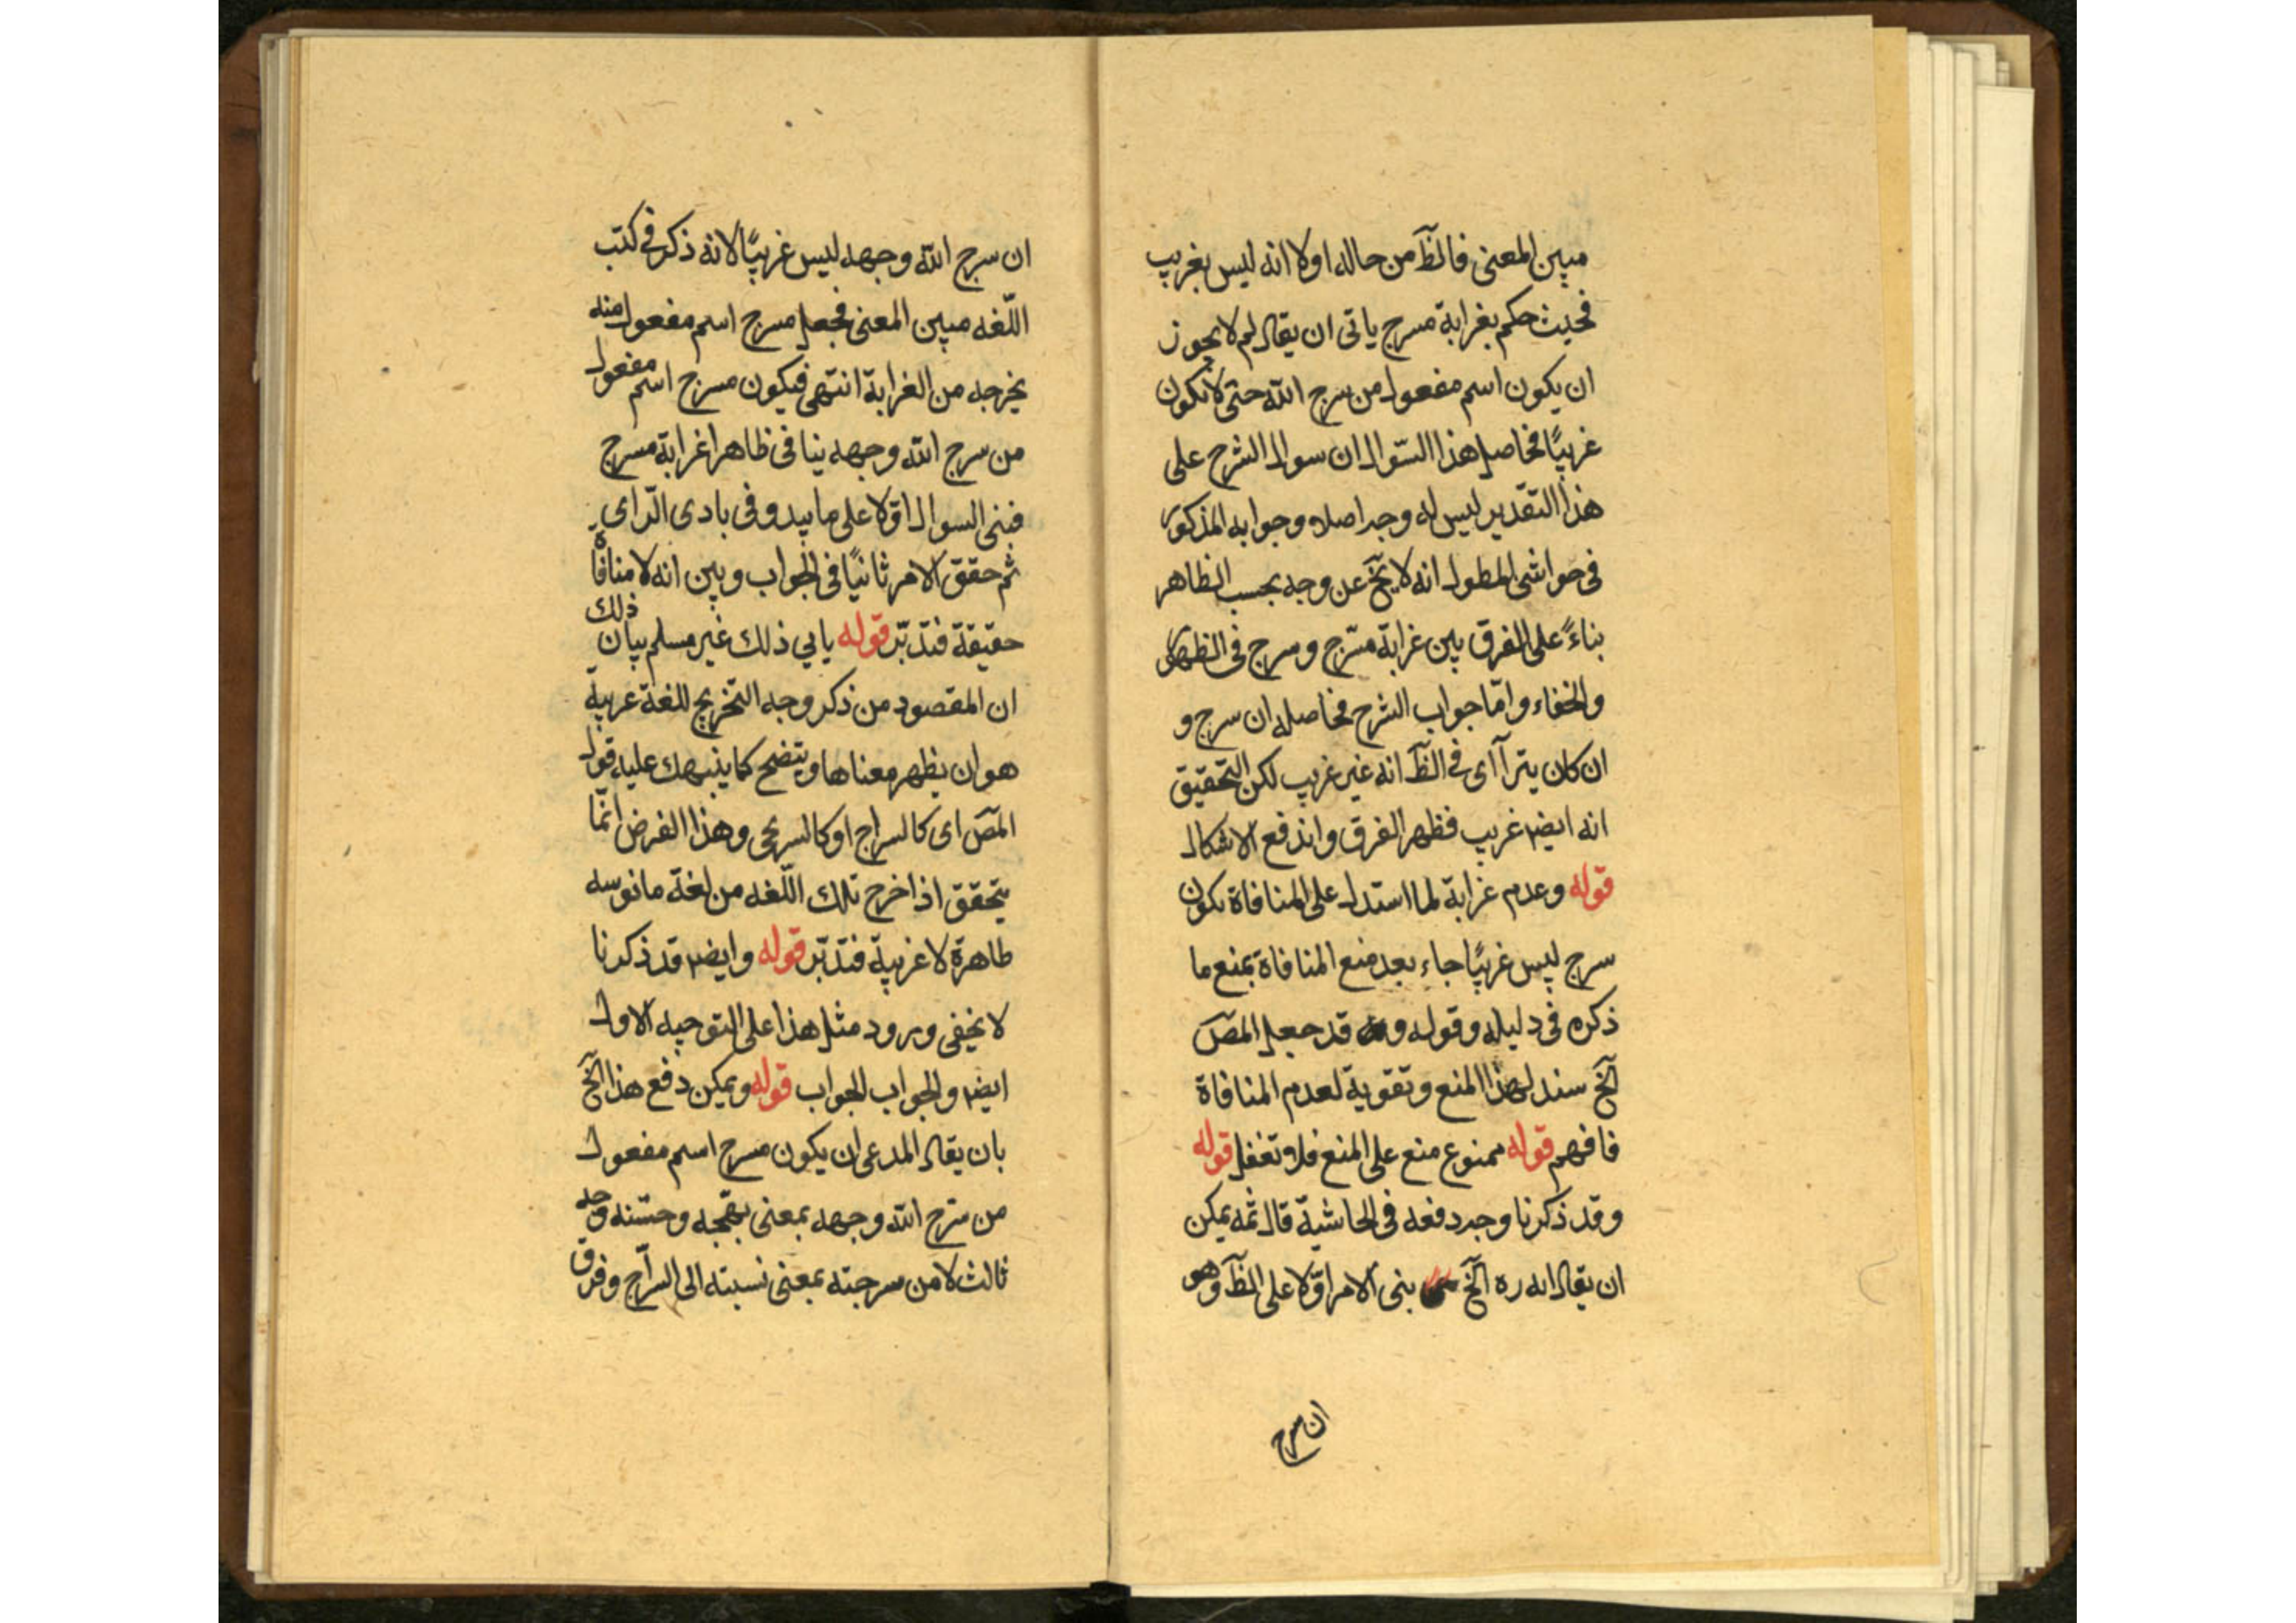 مبين المعنى فالظَ من حاله اولا انه ليس بغريب
فحيث حكم بغرابة مسرج ياتى ان يقال لم لا يجوز
ان يكون اسم مفعول من سرج الله حتى لا يكون
غريبًا فحاصل هذا السّوال ان سوال الشرح على
هذا التقدير ليس له وجه اصلا وجوابه المذكور
فى حواشى المطول انه لا يخ عن وجه بحسب الظاهر
بناءً على الفرق بين غرابة مسّرج وسرج فى الظهور
والخفاء وامّا جواب الشرح فحاصله ان سرج و
ان كان يترآاى فى الظَ انه غير غريب لكن التحقيق
انه ايضا غريب فظهر الفرق واندفع الاشكال
قوله وعدم غرابة لما استدل على المنافاة بكون
سرج ليس غريبًا جاء بعد منع المنافاة بمنع ما
ذكره فى دليله وقوله و قد جعل المصَ
الخَ سند لهذا المنع وتقوية لعدم المنافاة
فافهم قوله ممنوع منع على المنع فلا تغفل قوله
وقد ذكرنا وجه دفعه فى الحاشية قال ثمه يمكن
ان يقال انه ره الخَ بنى الامر اوّلا على الظَ وهو
ان سرج
ان سرج الله وجهه ليس غريبًا لانه ذكر فى كتب
اللّغه مبين المعنى فجعل مسرج اسم مفعول منه
يخرجه من الغرابة انتهى فيكون مسرج اسم مفعول
من سرج الله وجهه ينافى ظاهرا غرابة مسرج
فبنى السوال اوّلا على ما يبدو فى بادى الرّاى
ثم حقق الامر ثانيًا فى الجواب وبين انه لا منافاة
حقيقة فتدبّر قوله يابي ذلك غير مسلم بيان ذلك
ان المقصود من ذكر وجه التخريج للغة غريبة
هو ان يظهر معناها ويتضح كما ينبهك عليه قول
المصَ اى كالسراج او كالسريجى وهذا الغرض انّما
يتحقق اذا خرج تلك اللّغه من لغة مانوسه
ظاهرة لا غريبة فتدبّر قوله وايضا قد ذكرنا
لا يخفى ورود مثل هذا على التوجيه الاول
ايضا والجواب الجواب قوله ويمكن دفع هذا الخَ
بان يقال المدعى ان يكون مسرج اسم مفعول
من سرّج الله وجهه بمعنى بهّجه وحسّنه وجه
ثالث لا من سرجته بمعنى نسبته الى السرّاج وفرق